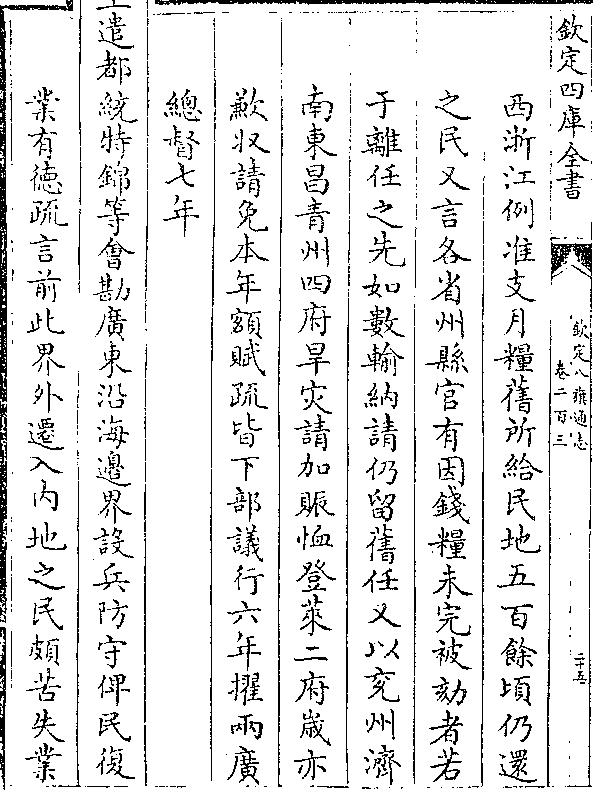 欽定四庫全書
欽定八旗通志
卷二百三
二十五
西浙江例准支月糧舊所給民地五百餘頃仍還
之民又言各省州縣官有因錢糧未完被劾者若
于離任之先如數輸納請仍留舊任又以兖州濟
南東昌青州四府旱灾請加賑恤登萊二府歲亦
歉收請免本年額賦疏皆下部議行六年擢兩廣
總督七年
上遣都統特錦等會勘廣東沿海邊界設兵防守俾民復
業有徳疏言前此界外遷入内地之民頗苦失業